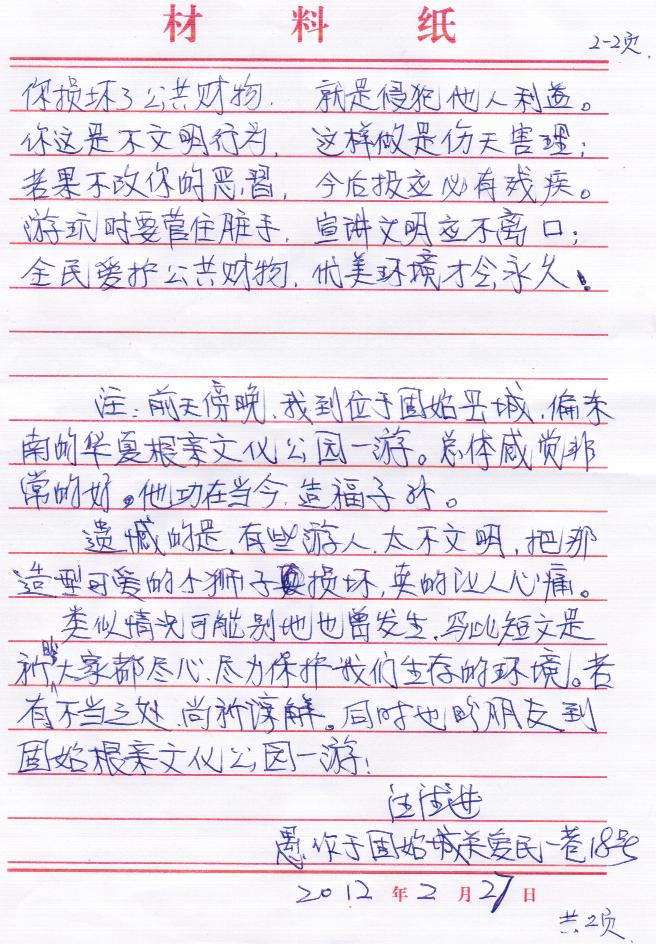 材料纸
2-2页
你损坏了公共财物. 就是侵犯他人利益。
你这是不文明行为, 这样做是伤天害理;
若果不改你的恶習, 今后报应必有残疾。
游玩时要管住脏手, 宣讲文明应不离口;
全民爱护公共财物, 优美环境才会永久!
注:前天傍晚,我到位于固始县城,偏东
南的华夏根亲文化公园一游。总体感觉非
常的好。他功在当今,造福子孙。
遗憾的是,有些游人,太不文明,把那
造型可爱的小狮子损坏,真的让人心痛。
类似情况可能别地也曾发生,写此短文是
祈盼大家都尽心、尽力保护我们生存的环境。若
有不当之处,尚祈谅解。同时也盼朋友到
固始根亲文化公园一游!
愚作于固始城关爱民一巷18号
2012年2月27日
共2页